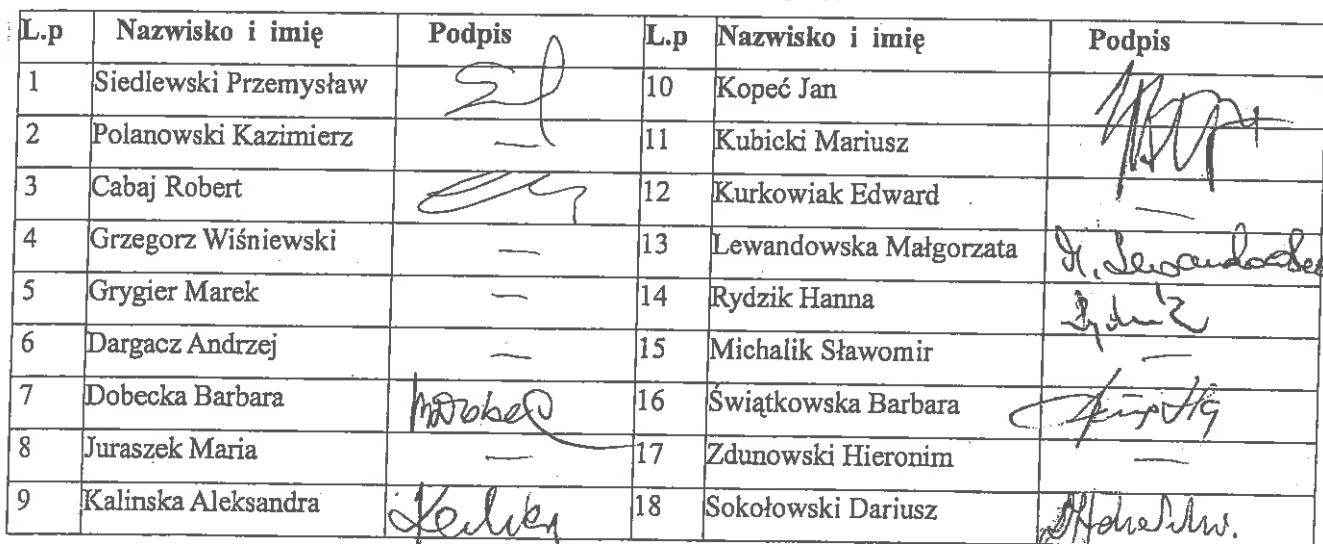 L.p Nazwisko i imię Podpis L.p Nazwisko i imię Podpis
1 Siedlewski Przemysław 10 Kopeć Jan
2 Polanowski Kazimierz — 11 Kubicki Mariusz
3 Cabaj Robert 12 Kurkowiak Edward —
4 Grzegorz Wiśniewski — 13 Lewandowska Małgorzata M. Lewandowska
5 Grygier Marek — 14 Rydzik Hanna
6 Dargacz Andrzej — 15 Michalik Sławomir —
7 Dobecka Barbara 16 Świątkowska Barbara
8 Juraszek Maria — 17 Zdunowski Hieronim —
9 Kalinska Aleksandra 18 Sokołowski Dariusz